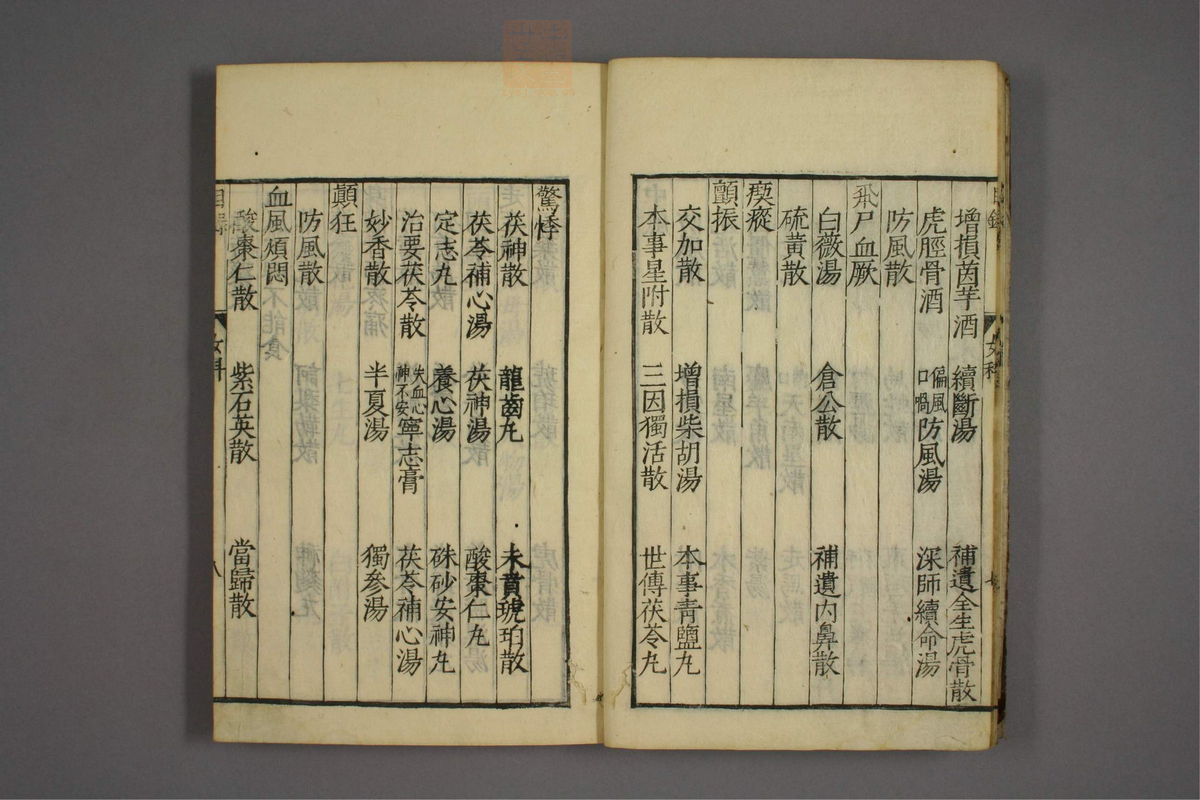 增損茵芋酒 續斷湯 補遺全生虎骨散
虎脛骨酒 偏風口喎防風湯 深師續命湯
防風散
飛尸血厥
白薇湯 倉公散 補遺內鼻散
硫黃散
瘈瘲
顫振
交加散 增損柴胡湯 本事青鹽丸
本事星附散 三因獨活散 世傳茯苓丸
驚悸
茯神散 龍齒丸 琥珀散
茯苓補心湯 茯神湯 酸棗仁丸
定志丸 養心湯 硃砂安神丸
治要茯苓散 失血心神不安寧志膏 茯苓補心湯
妙香散 半夏湯 獨參湯
顛狂
防風散
血風煩悶
酸棗仁散 紫石英散 當歸散
目錄 女科 八